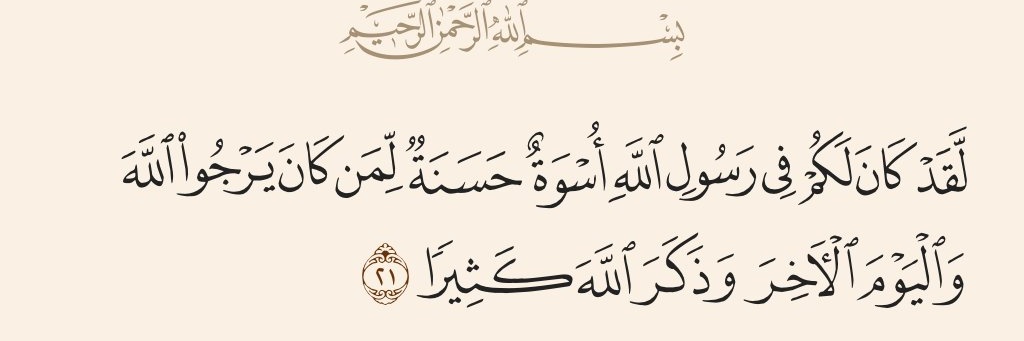 بِسْمِ ٱللَّهِ ٱلرَّحْمَٰنِ ٱلرَّحِيمِ
لَّقَدْ كَانَ لَكُمْ فِى رَسُولِ ٱللَّهِ أُسْوَةٌ حَسَنَةٌ لِّمَن كَانَ يَرْجُوا۟ ٱللَّهَ
وَٱلْيَوْمَ ٱلْـَٔاخِرَ وَذَكَرَ ٱللَّهَ كَثِيرًا ٢١